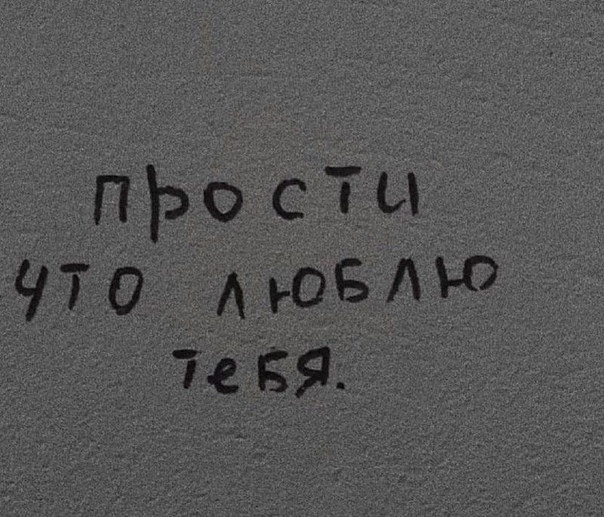 прости
что люблю
тебя.